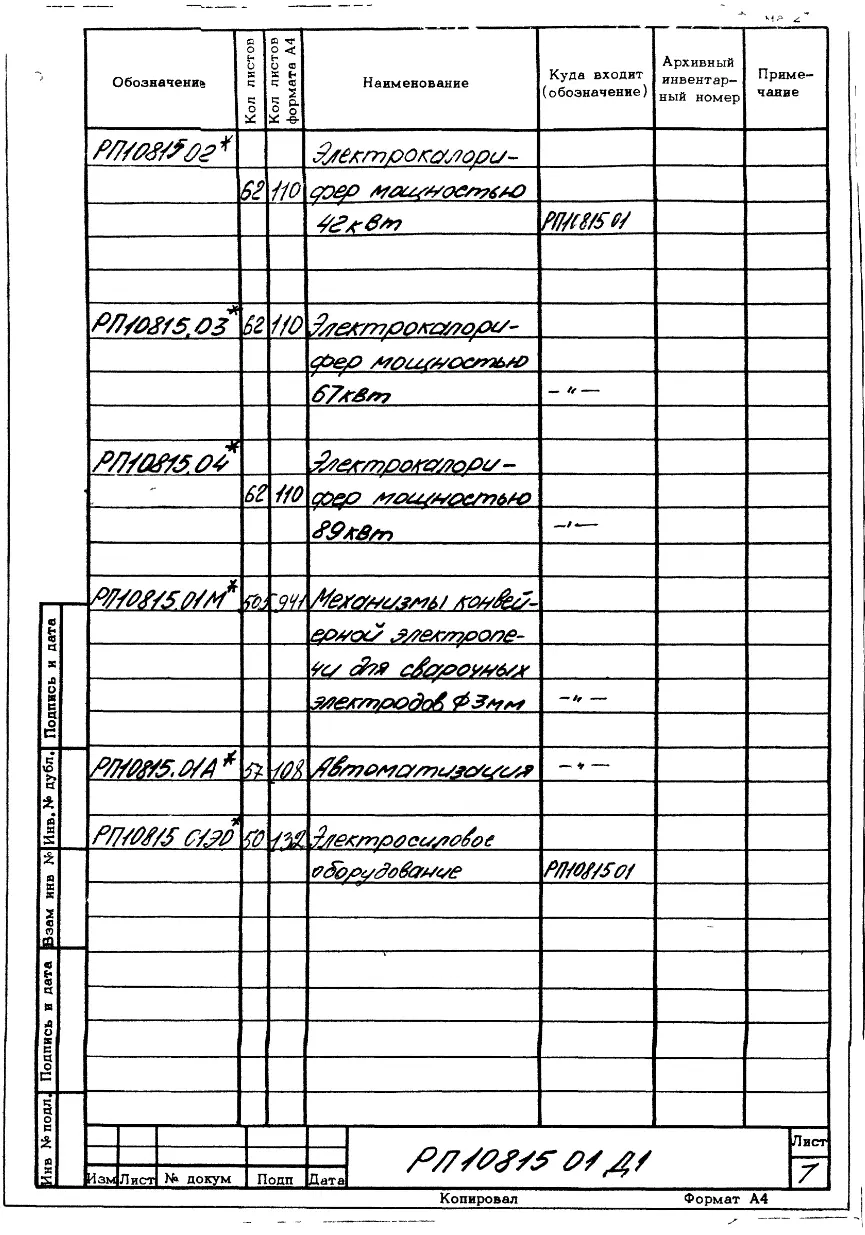 Обозначение
Кол листов
Кол листов
формата А4
Наименование
Куда входит
(обозначение)
Архивный
инвентар-
ный номер
Приме-
чание
РП10815 02* Электрокалори-
62 110 фер мощностью
42квт РП10815 01
РП10815.03* 62 110 Электрокалори-
фер мощностью
67квт —〃—
РП10815.04* Электрокалори-
62 110 фер мощностью
89квт —〃—
РП10815.01М* 505 941 Механизмы конвей-
ерной электропе-
чи для сварочных
электродов Ф3мм —〃—
РП10815.01А* 57 108 Автоматизация —〃—
РП10815 01ЭО* 50 132 Электросиловое
оборудование РП10815 01
Подпись и дата
Инв. № дубл.
Взам инв №
Подпись и дата
Инв № подл.
Изм Лист № докум Подп Дата
РП10815 01 Д1
Лист
7
Копировал Формат А4